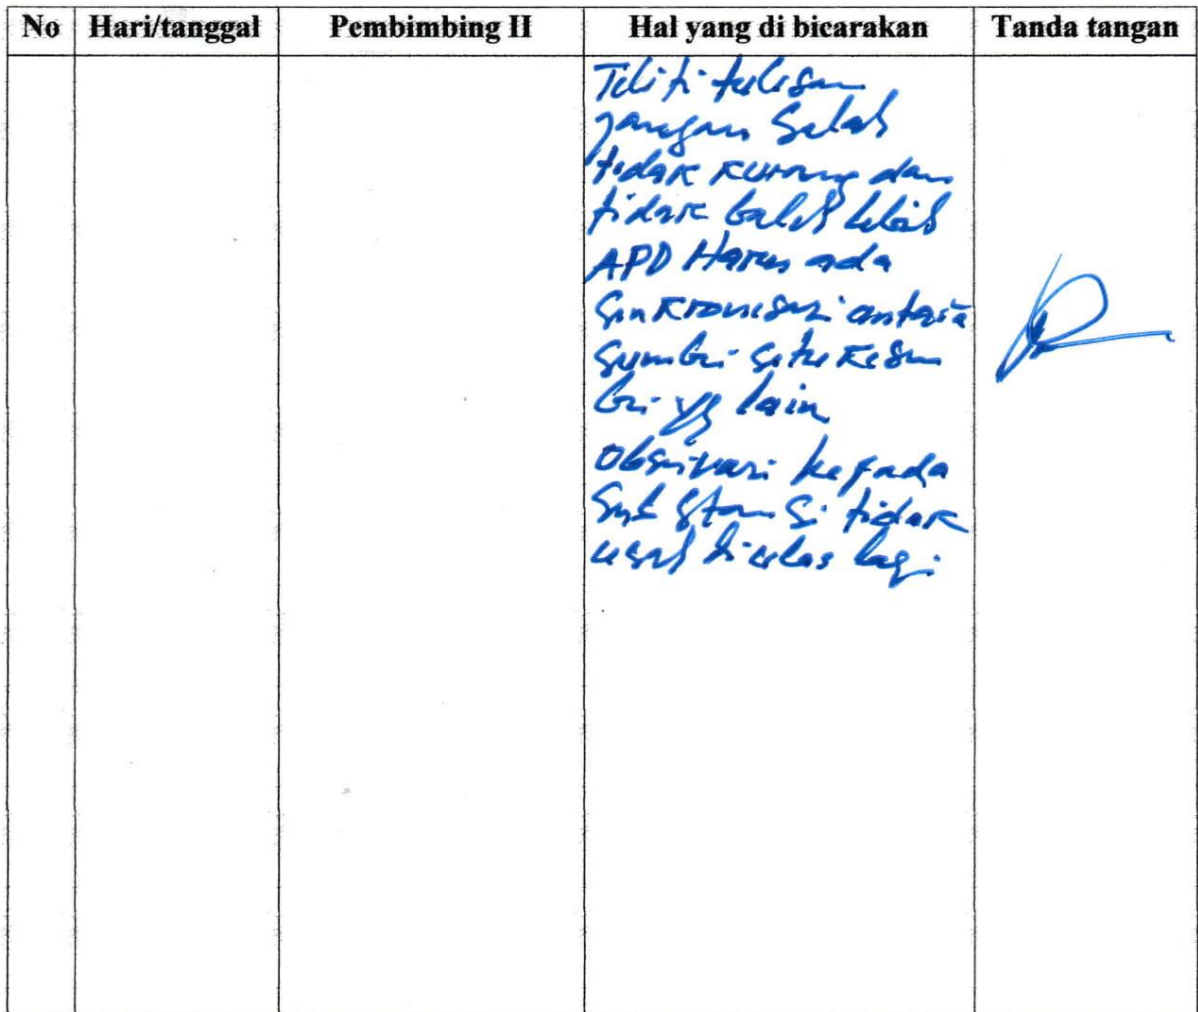 No Hari/tanggal Pembimbing II Hal yang di bicarakan Tanda tangan
Teliti tulisan
jangan Salah
tidak kurang dan
tidak boleh lebih
APD Harus ada
Sinkronisasi antara
Sumber satu ke Sum
ber yg lain
Observasi kepada
Substansi tidak
usah diulas lagi